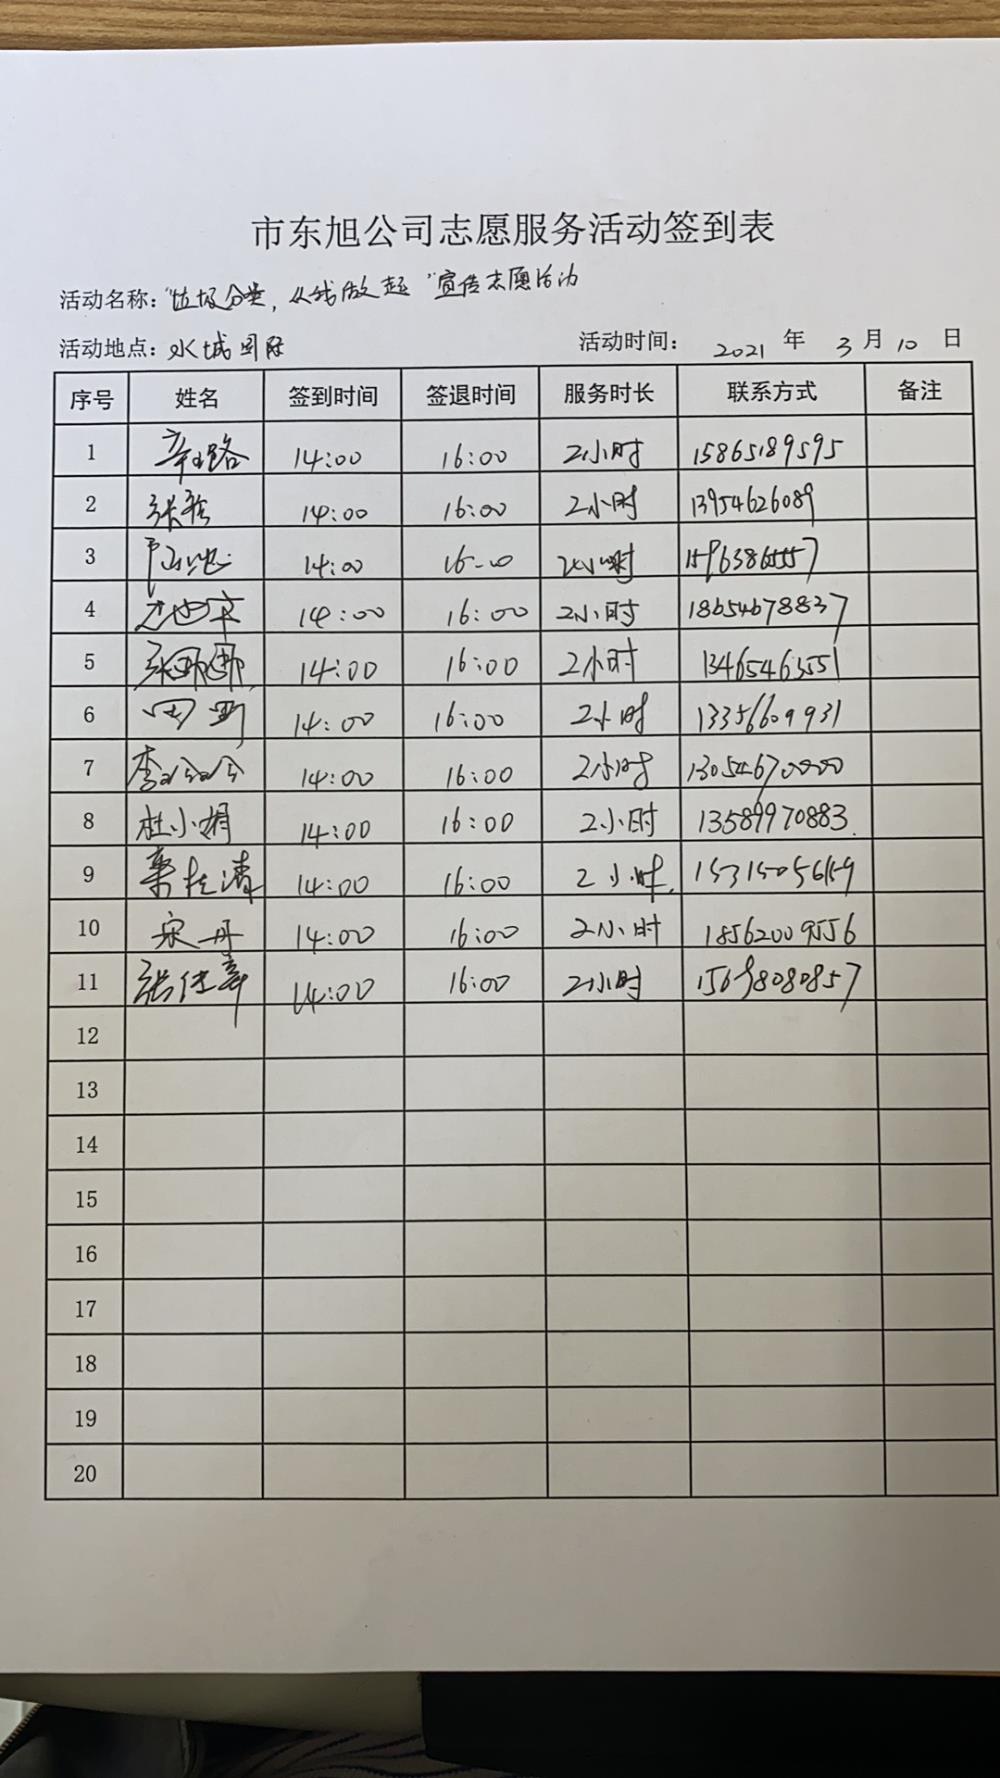 市东旭公司志愿服务活动签到表
活动名称："垃圾分类，从我做起"宣传志愿活动
活动地点：水城国际 活动时间： 2021 年 3 月 10 日
序号 姓名 签到时间 签退时间 服务时长 联系方式 备注
1 辛路 14:00 16:00 2小时 15865189595
2 张 14:00 16:00 2小时 13954626089
3 14:00 16:00 2小时
4 14:00 16:00 2小时 18654678837
5 张娜娜 14:00 16:00 2小时 13465463551
6 14:00 16:00 2小时 13356609931
7 李 14:00 16:00 2小时 13054670000
8 杜小娟 14:00 16:00 2小时 13589970883
9 清 14:00 16:00 2小时
10 宋丹 14:00 16:00 2小时 18562009556
11 张佳 14:00 16:00 2小时 15698080857
12
13
14
15
16
17
18
19
20